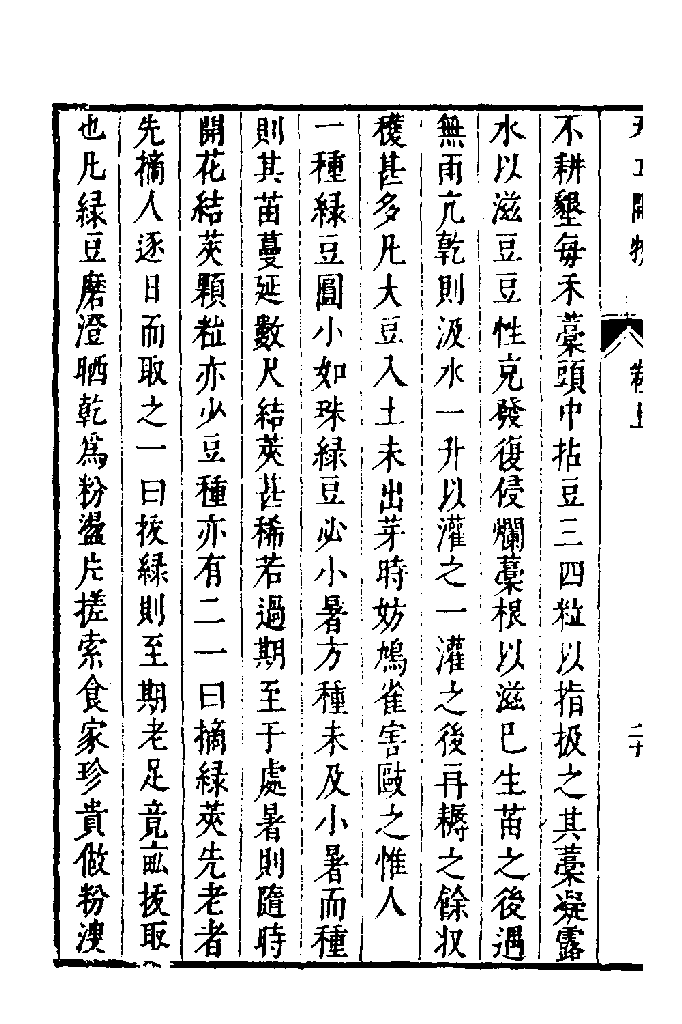 天工開物 卷上 二十
不耕墾每禾藁頭中拈豆三四粒以指扱之其藁凝露
水以滋豆豆性克發復侵爛藁根以滋已生苗之後遇
無雨亢乾則汲水一升以灌之一灌之後再耨之餘收
穫甚多凡大豆入土未出芽時妨鳩雀害敺之惟人
一種綠豆圓小如珠綠豆必小暑方種未及小暑而種
則其苗蔓延數尺結莢甚稀若過期至于處暑則隨時
開花結莢顆粒亦少豆種亦有二一曰摘綠莢先老者
先摘人逐日而取之一曰拔綠則至期老足竟畝拔取
也凡綠豆磨澄晒乾為粉盪片搓索食家珍貴做粉溲